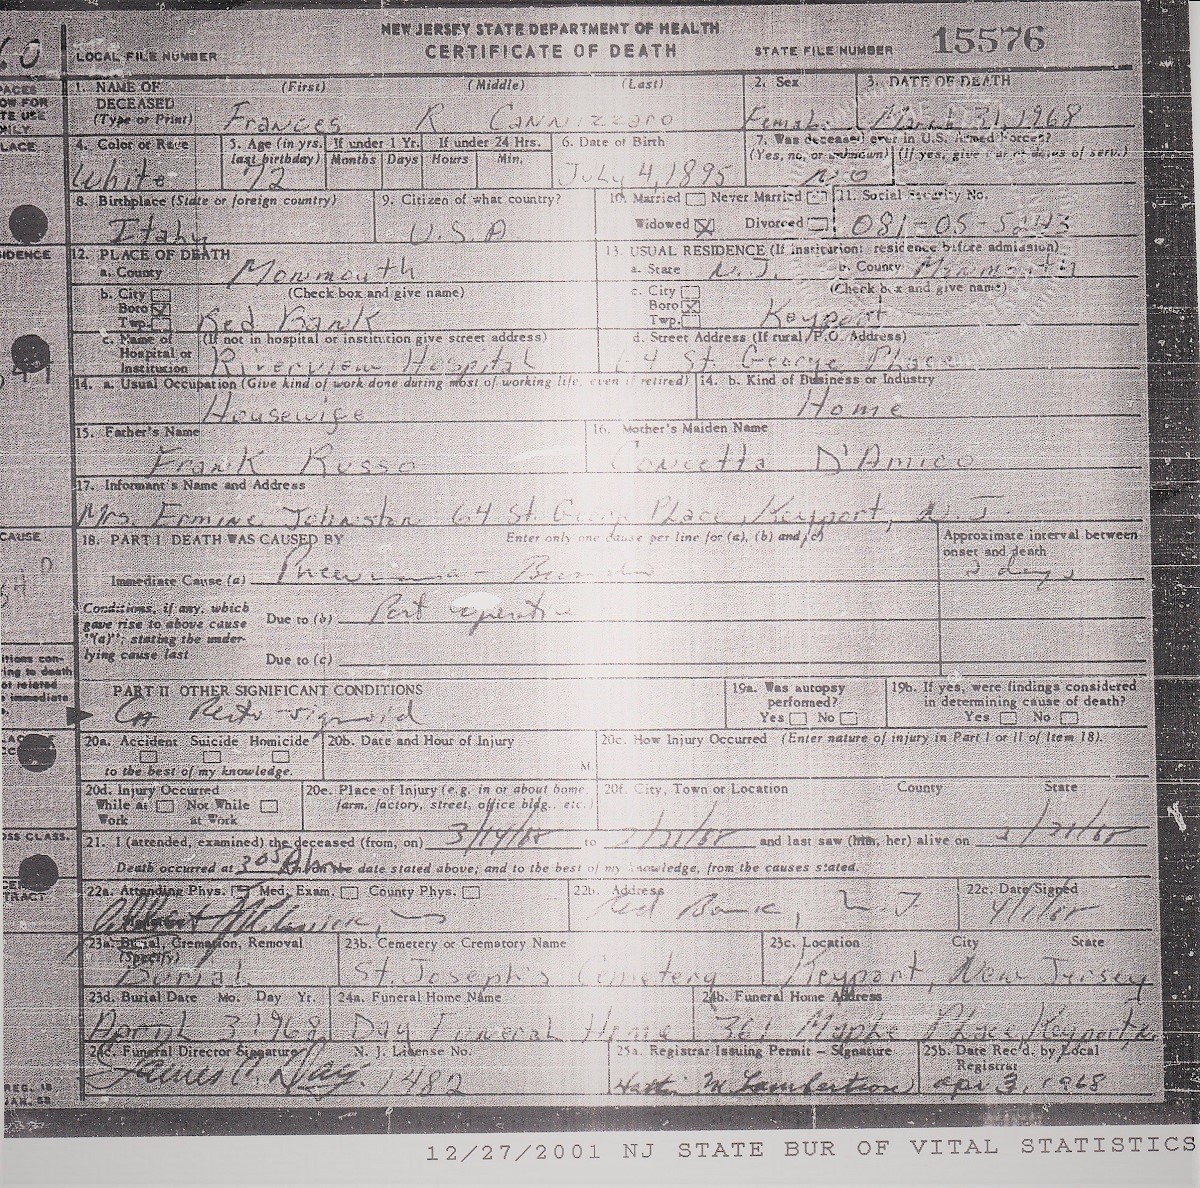 NEW JERSEY STATE DEPARTMENT OF HEALTH
CERTIFICATE OF DEATH
LOCAL FILE NUMBER
STATE FILE NUMBER 15576
1. NAME OF DECEASED (Type or Print) (First) (Middle) (Last)
Frances R Cannizzaro
2. Sex
Female
3. DATE OF DEATH
March 31, 1968
4. Color or Race
White
5. Age (in yrs. last birthday) If under 1 Yr. Months Days If under 24 Hrs. Hours Min.
72
6. Date of Birth
July 4, 1895
7. Was deceased ever in U.S. Armed Forces?
(Yes, no, or unknown) (If yes, give war or dates of serv.)
No
8. Birthplace (State or foreign country)
Italy
9. Citizen of what country?
U.S.A
10. Married Never Married
Widowed Divorced
11. Social Security No.
081-05-
12. PLACE OF DEATH
a. County Monmouth
b. City Boro Twp. (Check box and give name)
Red Bank
c. Name of Hospital or Institution (If not in hospital or institution give street address)
Riverview Hospital
13. USUAL RESIDENCE (If institution: residence before admission)
a. State N.J. b. County Monmouth
c. City Boro Twp. (Check box and give name)
Keyport
d. Street Address (If rural P.O. Address)
64 St. George Place
14. a. Usual Occupation (Give kind of work done during most of working life, even if retired)
Housewife
14. b. Kind of Business or Industry
Home
15. Father's Name
Frank Russo
16. Mother's Maiden Name
Concetta D'Amico
17. Informant's Name and Address
Mrs. Ermine Johnston 64 St. George Place, Keyport, N.J
18. PART I DEATH WAS CAUSED BY Enter only one cause per line for (a), (b) and (c)
Approximate interval between onset and death
Immediate Cause (a) Pneumonia -
2 days
Conditions, if any, which gave rise to above cause "(a)"; stating the underlying cause last
Due to (b) Post operative
Due to (c)
PART II OTHER SIGNIFICANT CONDITIONS
Ca Recto-sigmoid
19a. Was autopsy performed?
Yes No
19b. If yes, were findings considered in determining cause of death?
Yes No
20a. Accident Suicide Homicide
to the best of my knowledge.
20b. Date and Hour of Injury
M.
20c. How Injury Occurred (Enter nature of injury in Part I or II of Item 18).
20d. Injury Occurred
While at Work Not While at Work
20e. Place of Injury (e.g. in or about home, farm, factory, street, office bldg., etc.)
20f. City, Town or Location County State
21. I (attended, examined) the deceased (from, on) 3/14/68 to and last saw (him, her) alive on
Death occurred at 3 05 on the date stated above; and to the best of my knowledge, from the causes stated.
22a. Attending Phys. Med. Exam. County Phys.
22b. Address
Red Bank, N.J
22c. Date Signed
4/1/68
23a. Burial, Cremation, Removal (Specify)
Burial
23b. Cemetery or Crematory Name
St. Joseph's Cemetery
23c. Location City State
Keyport, New Jersey
23d. Burial Date Mo. Day Yr.
April 3 1968
24a. Funeral Home Name
Day Funeral Home
24b. Funeral Home Address
361 Maple Place, Keyport,
24c. Funeral Director Signature N. J. License No.
James Day 1482
25a. Registrar Issuing Permit - Signature
M Lambertson
25b. Date Rec'd. by Local Registrar
apr 3, 1968
12/27/2001 NJ STATE BUR OF VITAL STATISTICS